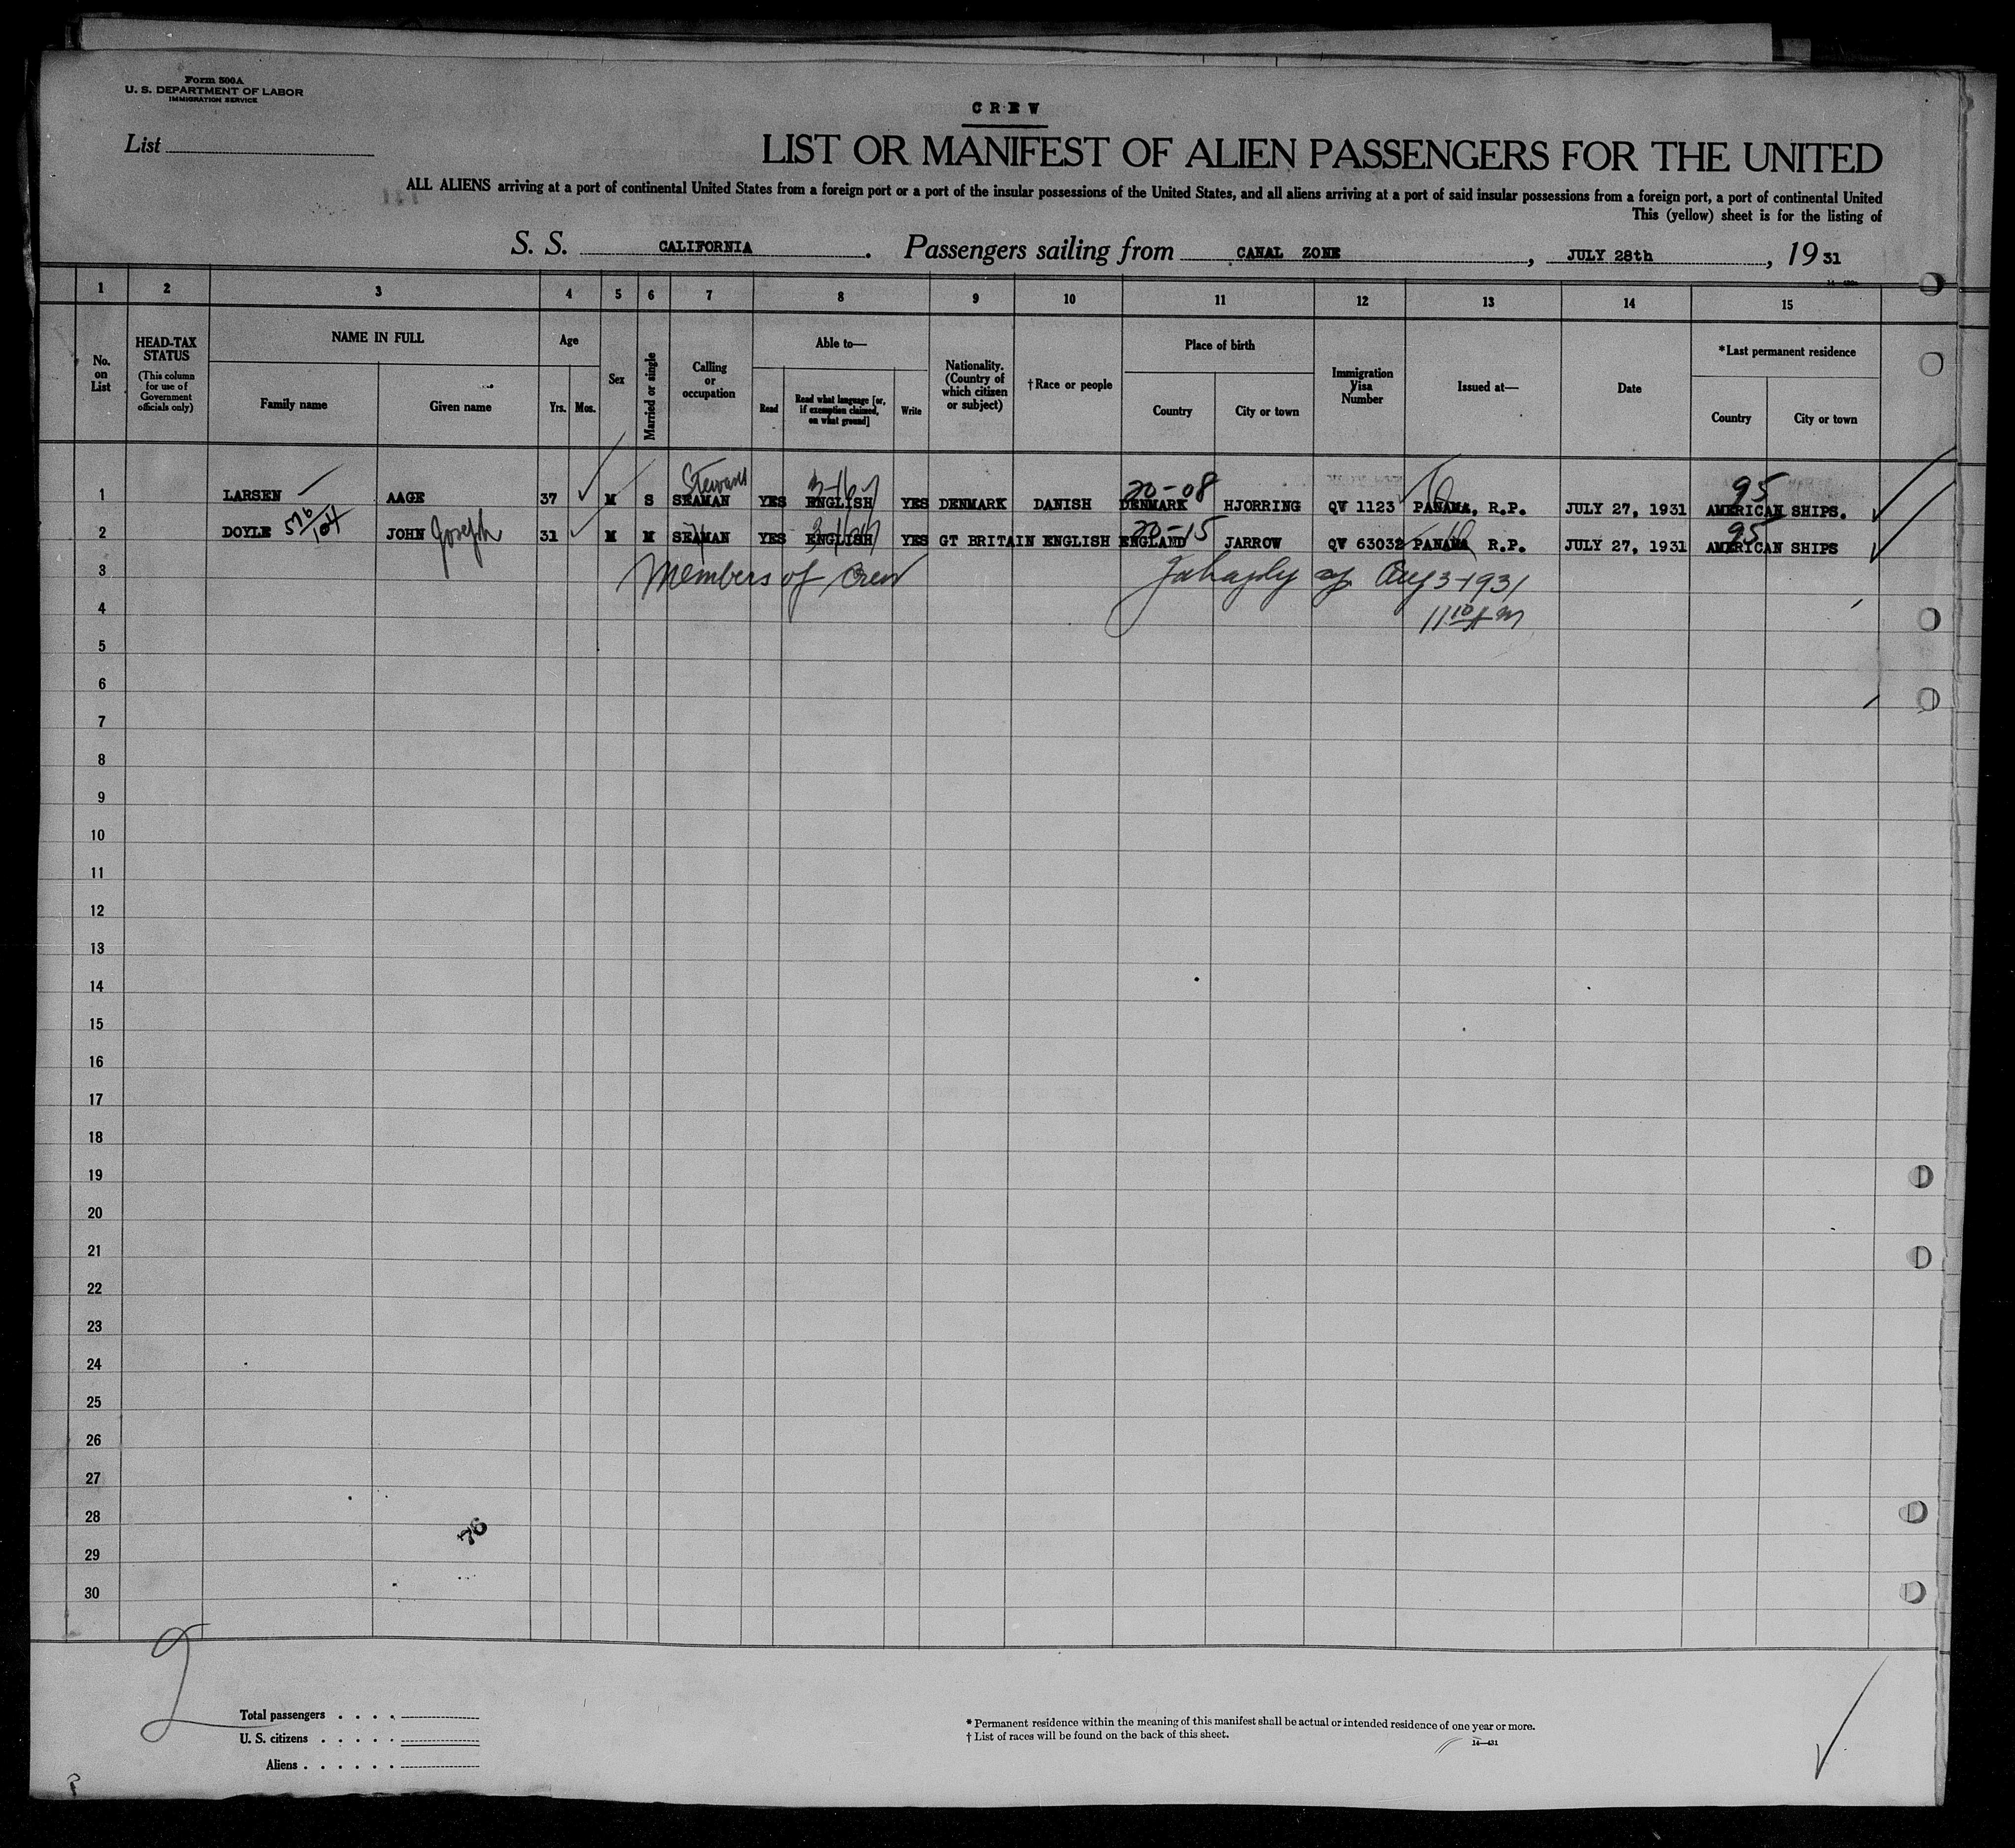 Form 500A
U. S. DEPARTMENT OF LABOR
IMMIGRATION SERVICE
CREW
List
LIST OR MANIFEST OF ALIEN PASSENGERS FOR THE UNITED
ALL ALIENS arriving at a port of continental United States from a foreign port or a port of the insular possessions of the United States, and all aliens arriving at a port of said insular possessions from a foreign port, a port of continental United
This (yellow) sheet is for the listing of
S. S. CALIFORNIA. Passengers sailing from CANAL ZONE, JULY 28th, 1931
1 2 3 4 5 6 7 8 9 10 11 12 13 14 15
No. on List
HEAD-TAX STATUS
(This column for use of Government officials only)
NAME IN FULL
Family name Given name
Age
Yrs. Mos.
Sex
Married or single
Calling or occupation
Able to—
Read
Read what language [or, if exemption claimed, on what ground]
Write
Nationality. (Country of which citizen or subject)
†Race or people
Place of birth
Country City or town
Immigration Visa Number
Issued at—
Date
*Last permanent residence
Country City or town
Steward 20-08 95
1 LARSEN AAGE 37 M S SEAMAN YES ENGLISH YES DENMARK DANISH DENMARK HJORRING QV 1123 PANAMA, R.P. JULY 27, 1931 AMERICAN SHIPS.
576/104 20-15 95
2 DOYLE JOHN Joseph 31 M M SEAMAN YES ENGLISH YES GT BRITAIN ENGLISH ENGLAND JARROW QV 63032 PANAMA R.P. JULY 27, 1931 AMERICAN SHIPS
3 Members of Crew Aug 3-1931
4 11 10 AM
5
6
7
8
9
10
11
12
13
14
15
16
17
18
19
20
21
22
23
24
25
26
27
28
76
29
30
Total passengers . . . .
U. S. citizens . . . . .
Aliens . . . . . .
* Permanent residence within the meaning of this manifest shall be actual or intended residence of one year or more.
† List of races will be found on the back of this sheet.
14—431